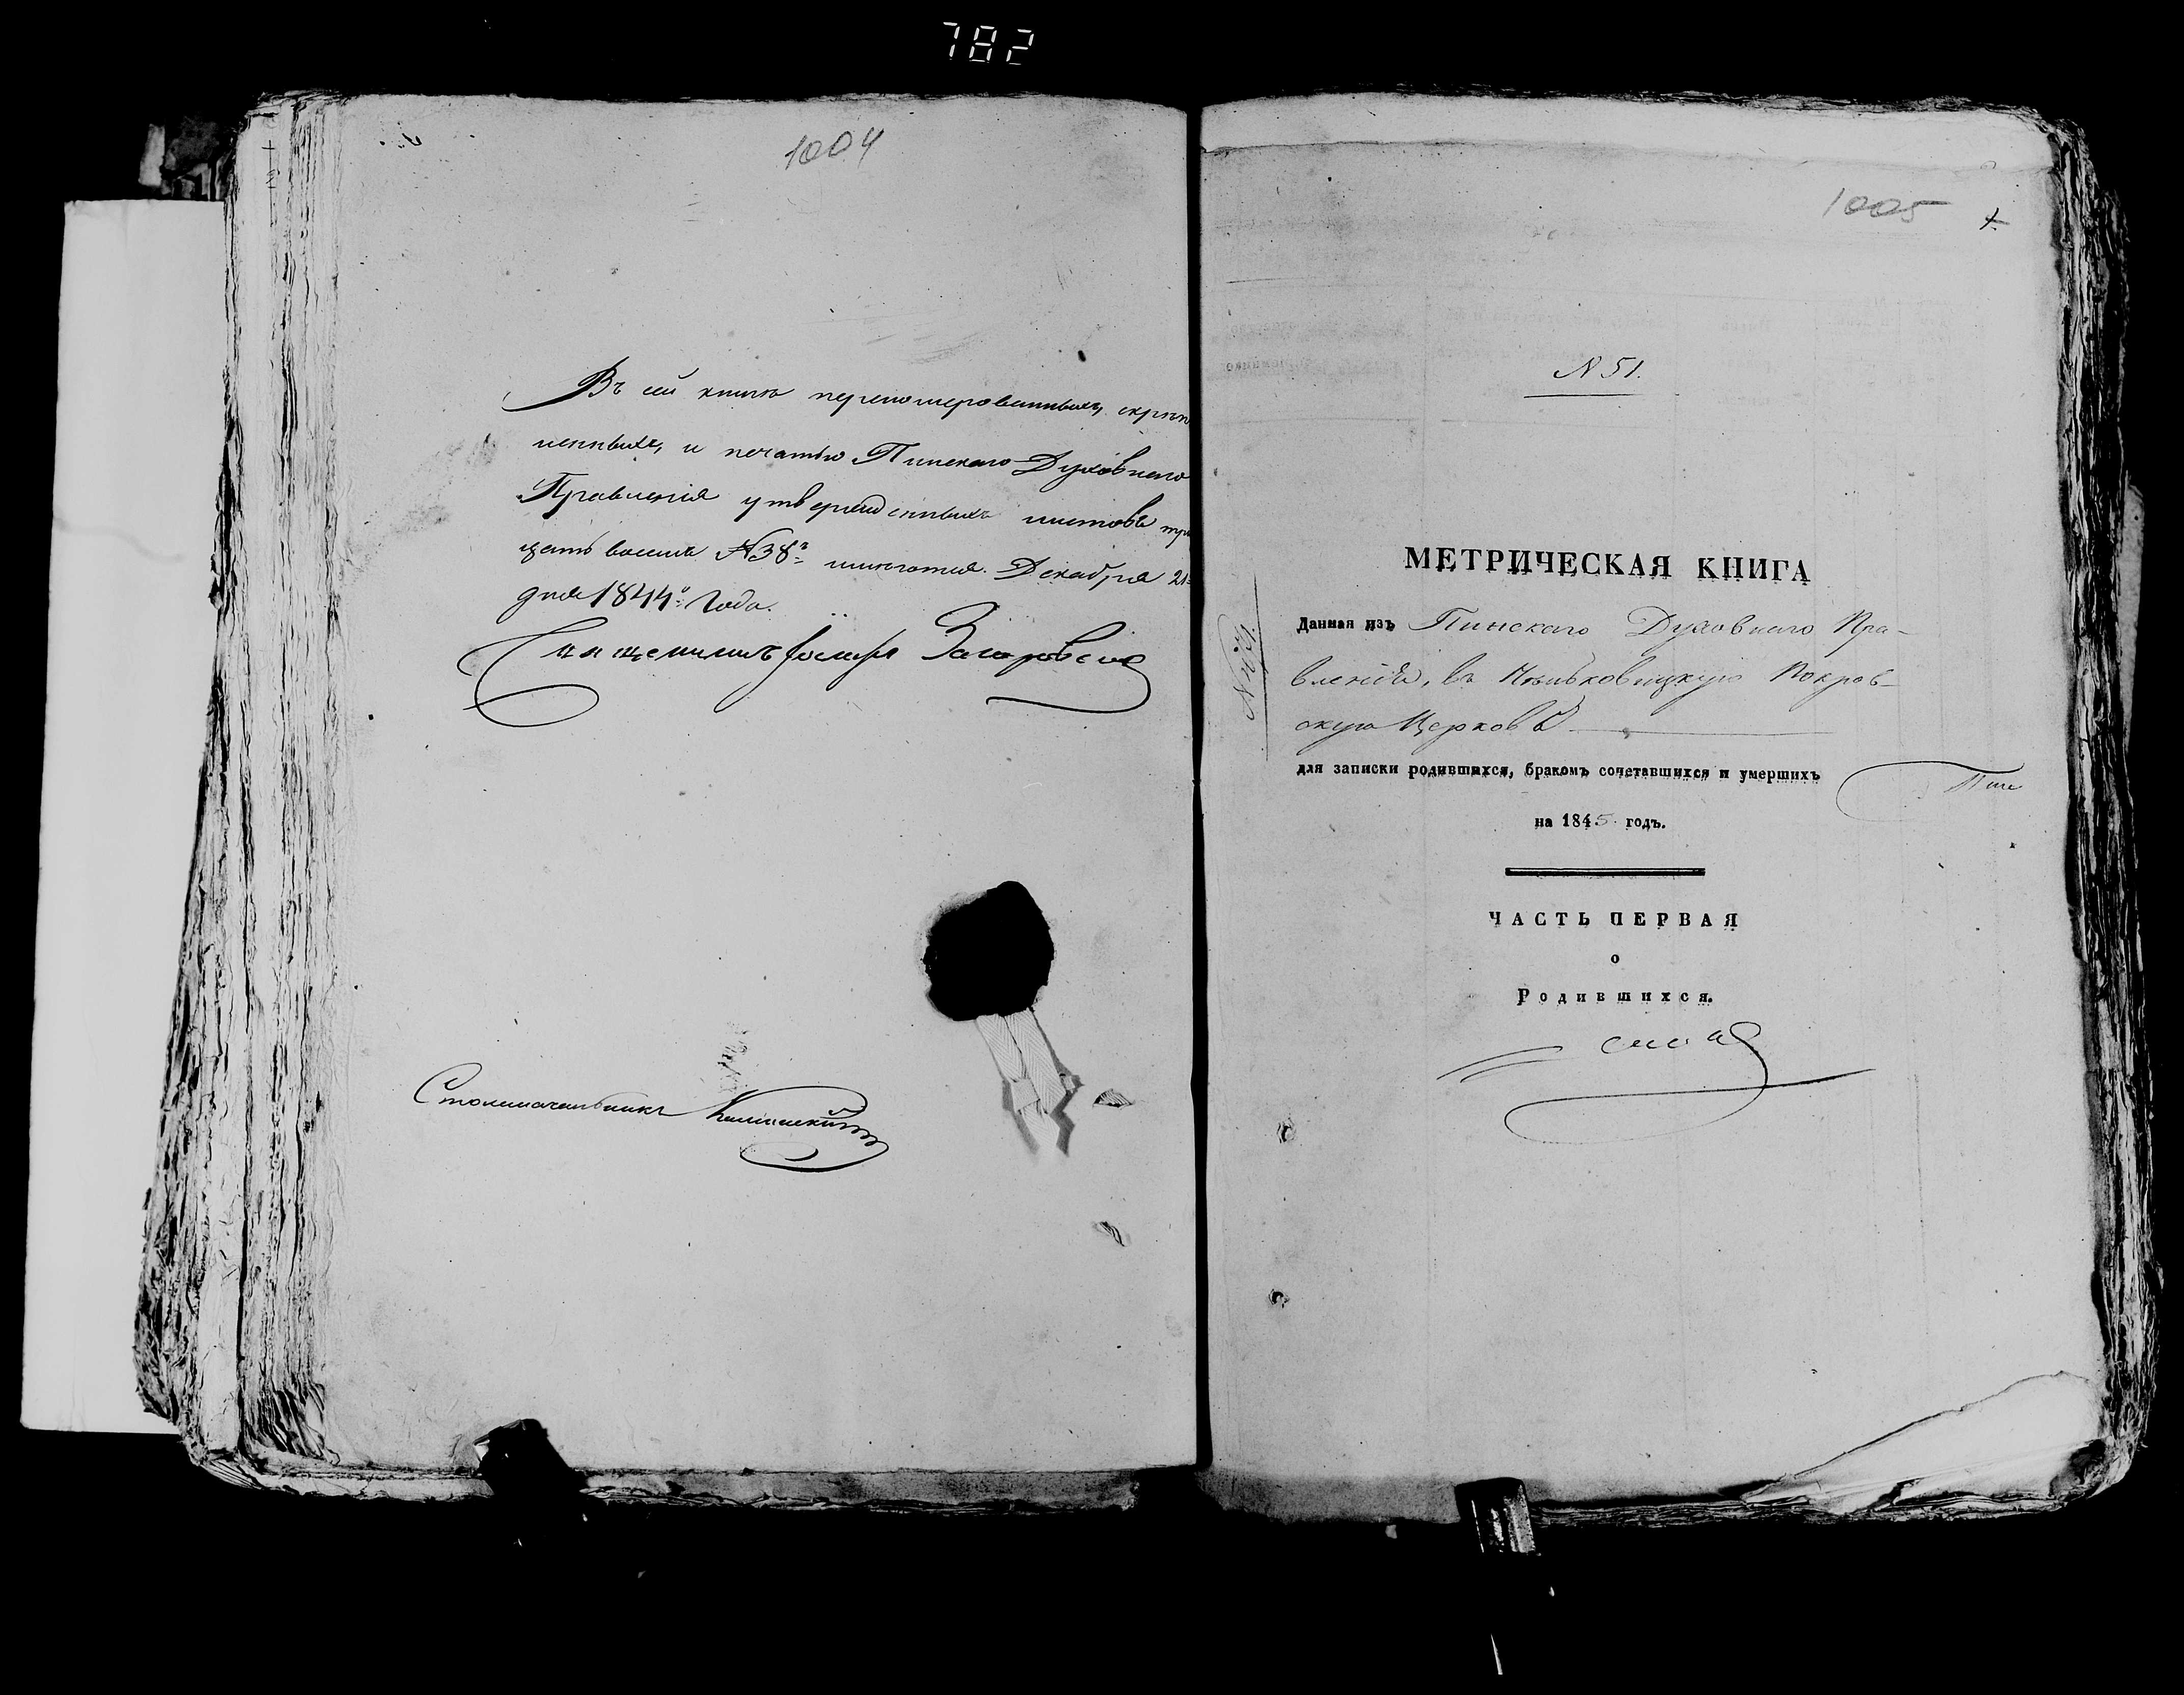 782
1004
Въ сей книгѣ перенумерованныхъ, скрѣп
ленныхъ, и печатью Пинскаго Духовнаго
Правленія утвержденныхъ листовъ три
цать восемь №38ъ имѣется. Декабря 21
дня 1844го Года.
Священникъ Іосифъ
Столоначальникъ
1005
1.
N 51.
МЕТРИЧЕСКАЯ КНИГА
Данная изъ Пинскаго Духовнаго Пра-
вленія, въ Покров-
скую Церковь
для записки родившихся, бракомъ сочетавшихся и умершихъ
Пин
на 1845 годъ.
ЧАСТЬ ПЕРВАЯ
о
Родившихся.
скаго
N 51.